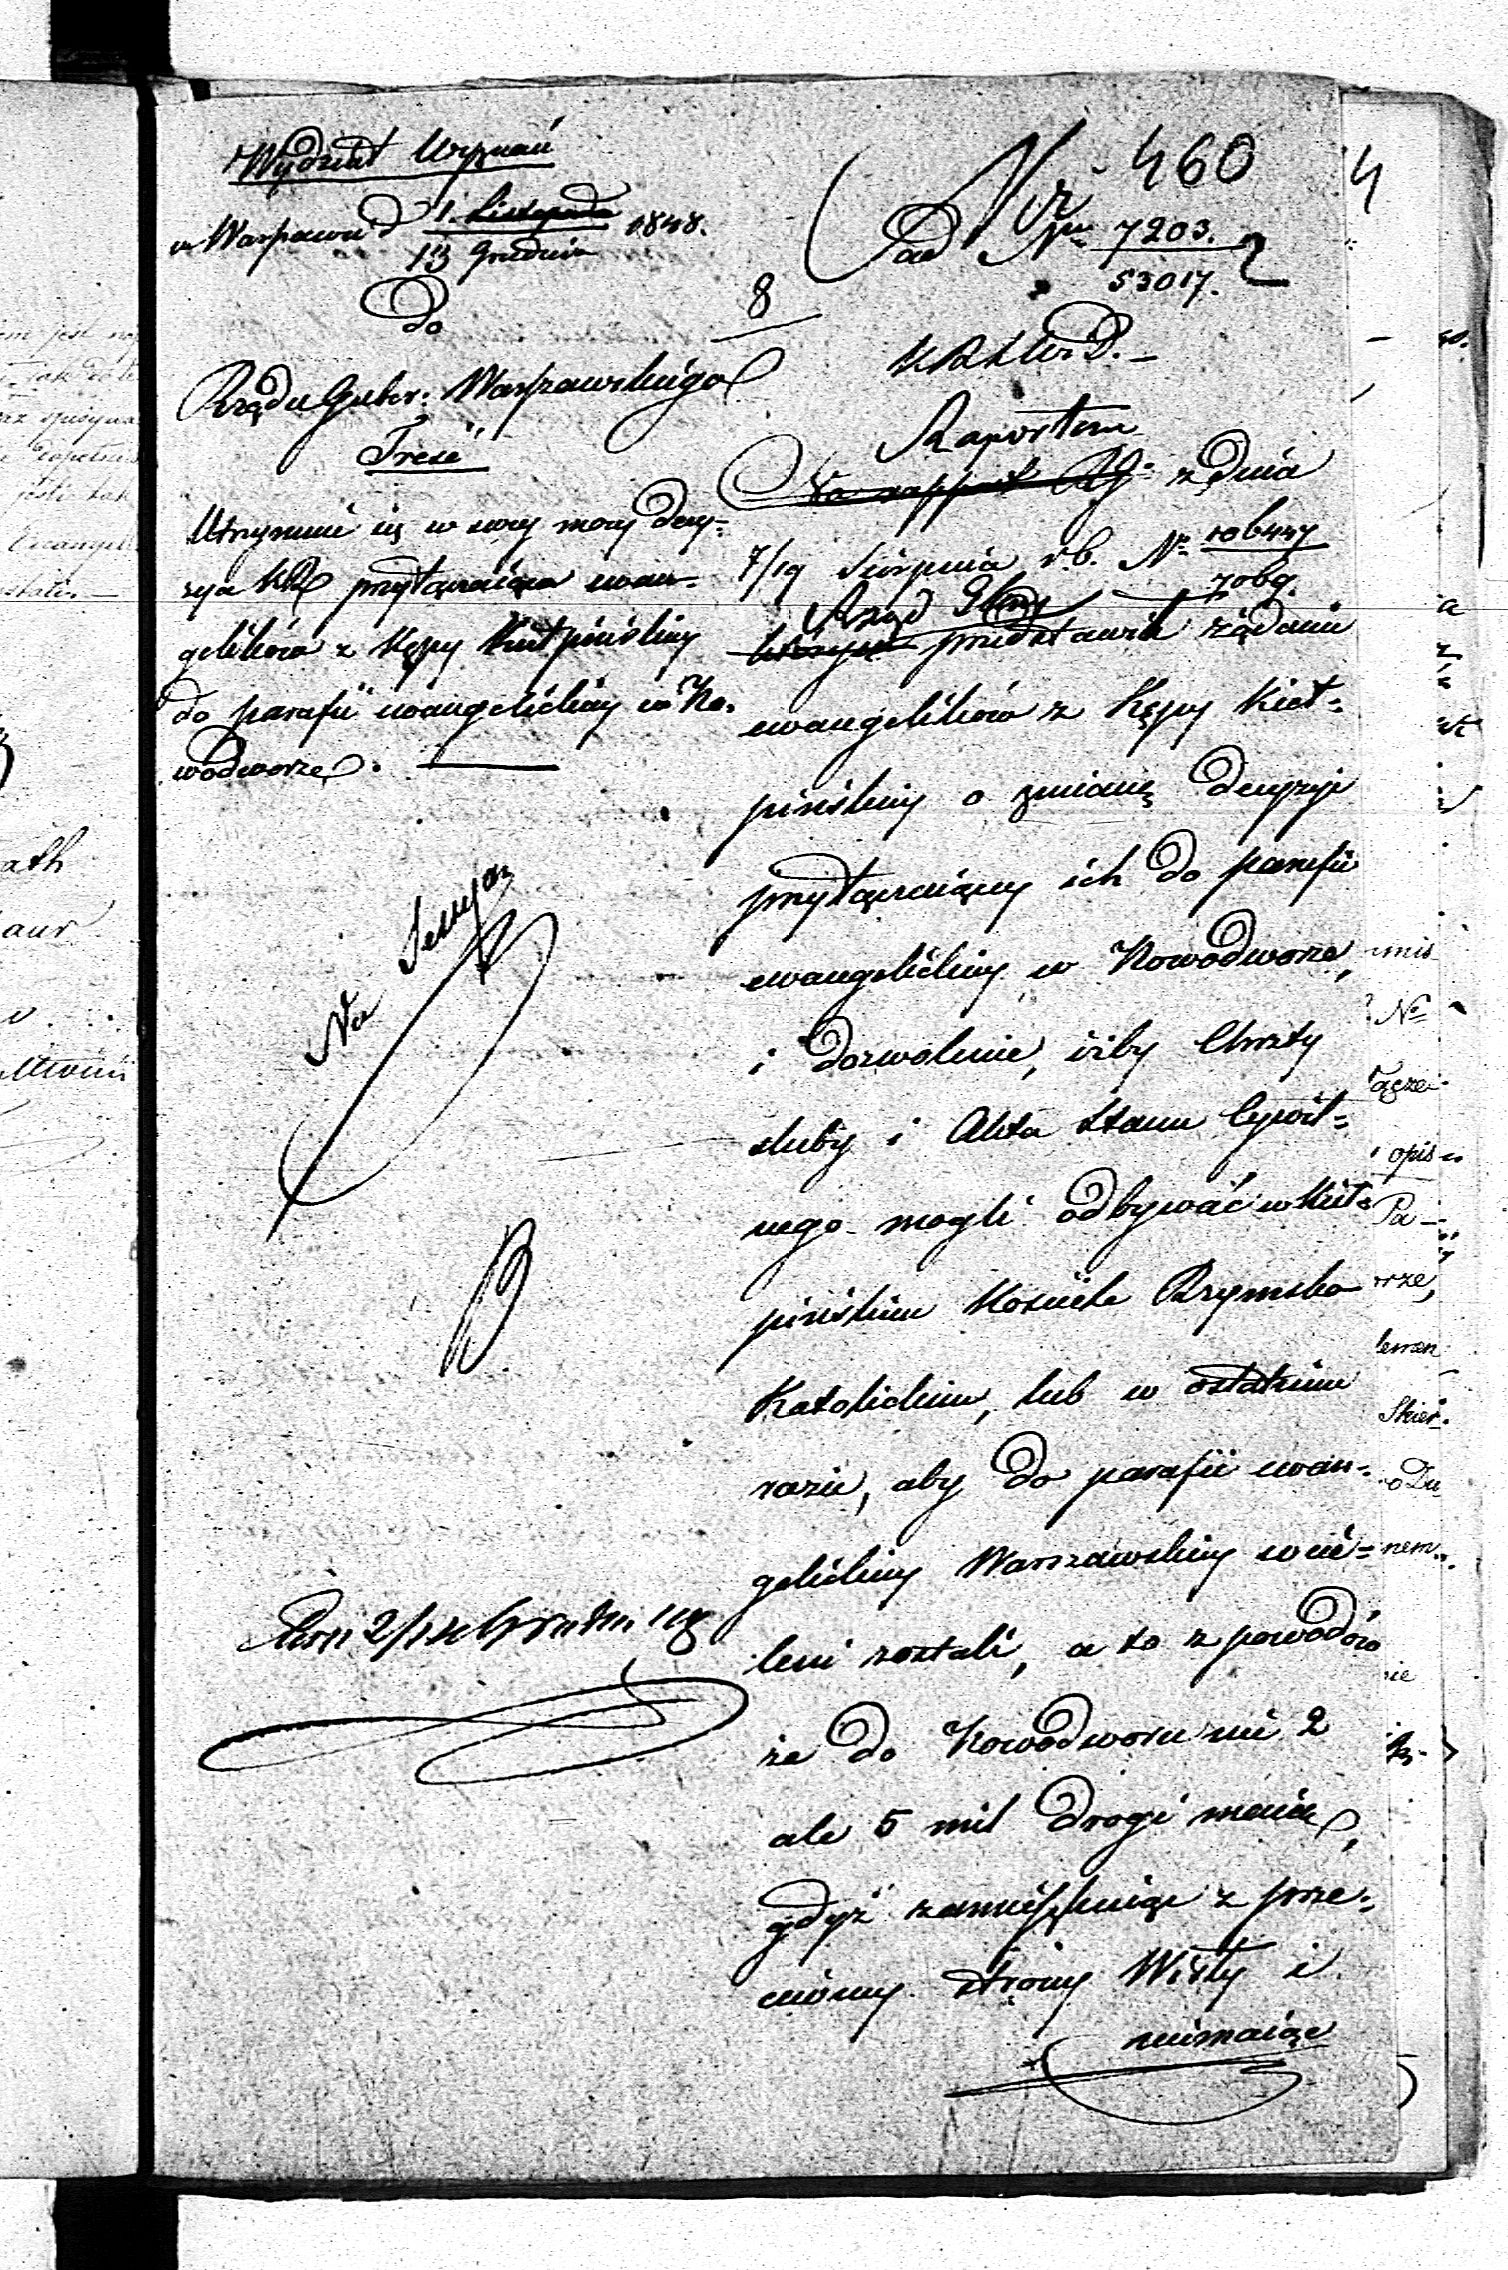 Wydział Wyznań
w Warszawie d 1 Listopada 1848.
13 Grudnia
Do
Rządu Guber: Warszawskiego
Treść
Utrzymuie się w swey mocy decy=
zya KR przyłączaiąca ewan=
gelików z Kępy Kiełpińskiey
do parafii ewangelickiey w No=
wodworze.
Na Sessyą
8
Nr 460
ad Nrm 7203.
53017.
KRSWiD.
Raportem
Na rapport RG: z dnia
7/19 Sierpnia r.b. Nr 106447
7069.
Rząd Gbny
którym przedstawił żądanie
ewangelików z Kępy Kieł=
pińskiey o zmianę decyzyi
przyłączaiącey ich do parafii
ewangelickiey w Nowodworze,
i dozwolenie, iżby Chrzty
śluby i Akta Stanu Cywil=
nego mogli odbywać w Kieł=
pińskim Kościele Rzymsko
Katolickim, lub w ostatnim
razie, aby do parafii ewan=
gelickiey Warszawskiey wcie=
leni zostali, a to z powodów
że do Nowodworu nie 2
ale 5 mil drogi maią,
gdyż zamieszkuiąc z prze=
ciwney strony Wisły i
niemaiąc